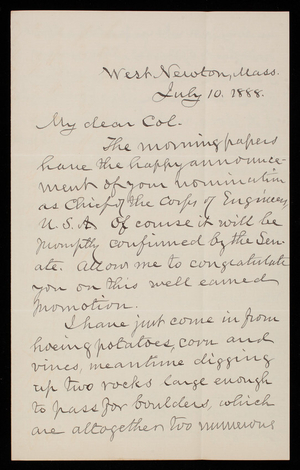 West Newton, Mass.
July 10. 1888.
My dear Col.
The morning papers
have the happy announce-
ment of your nomination
as Chief of the Corps of Engineers,
U.S.A. Of course it will be
promptly confirmed by the Sen-
ate. Allow me to congratulate
you on this well earned
promotion.
I have just come in from
hoeing potatoes, corn and
vines, meantime digging
up two rocks large enough
to pass for boulders, which
are altogether too numerous